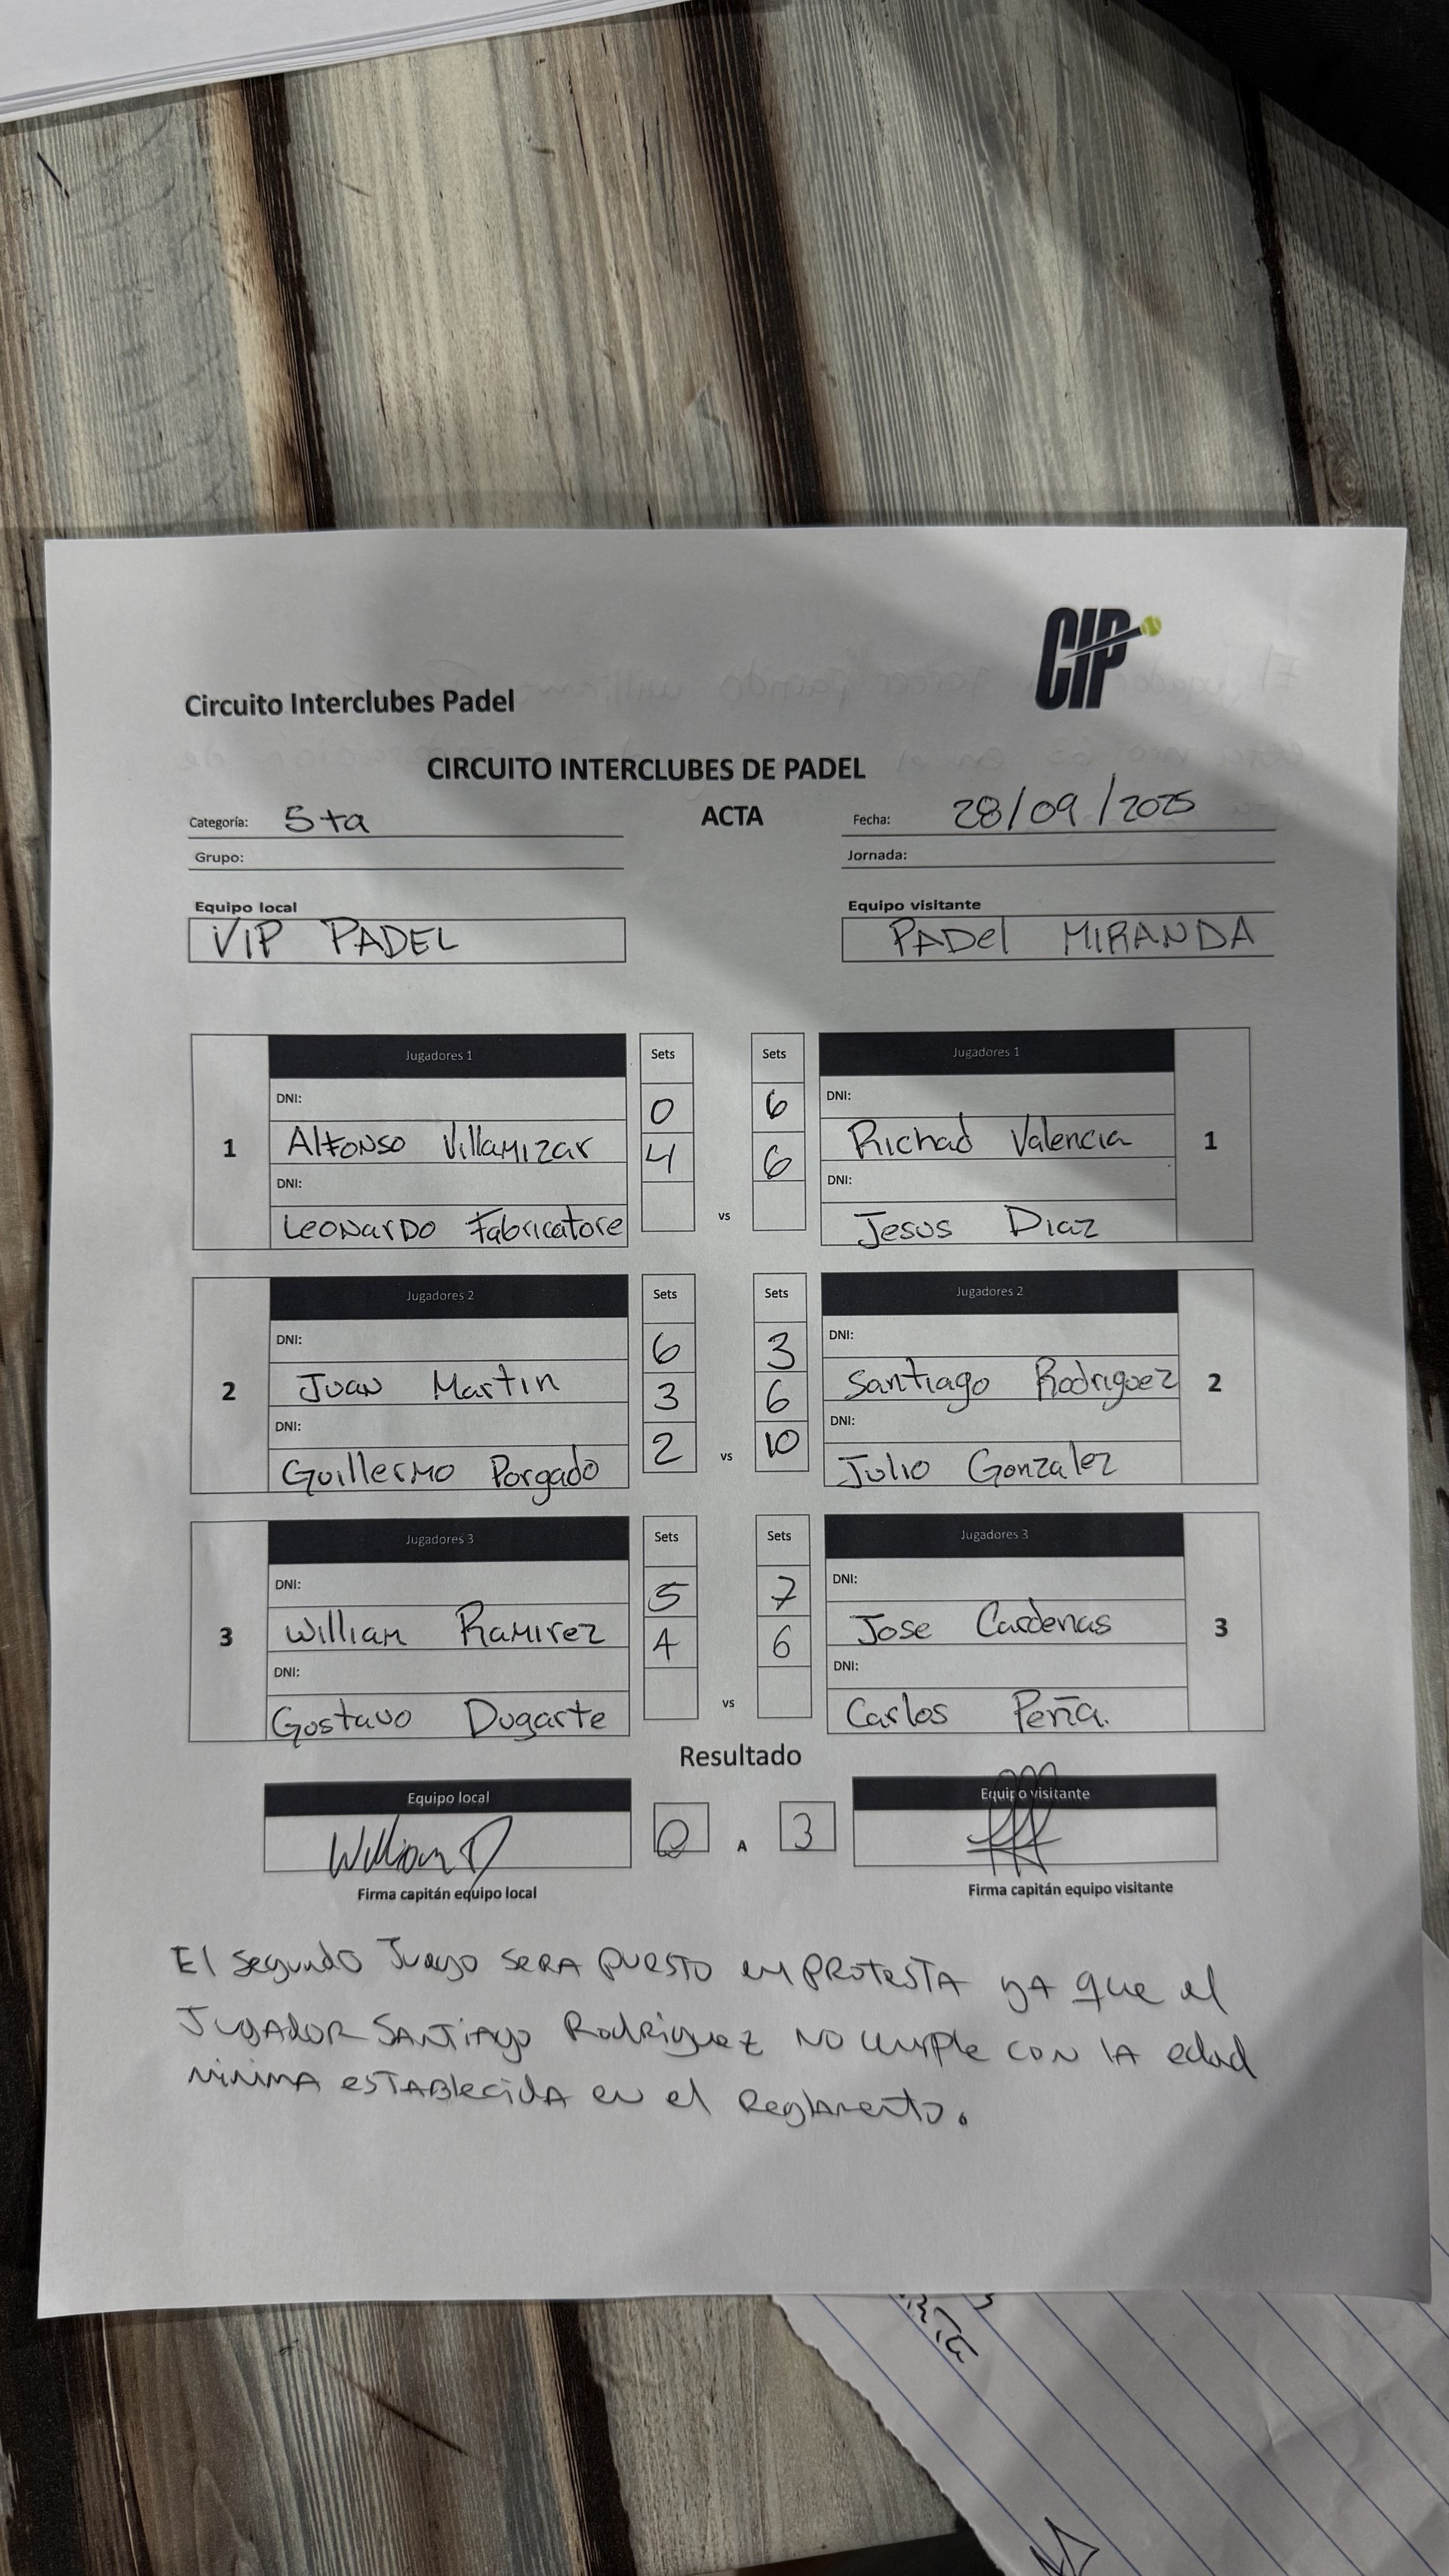 CIP
Circuito Interclubes Padel
CIRCUITO INTERCLUBES DE PADEL
Categoría: 5ta ACTA Fecha: 28/09/2025
Grupo: Jornada:
Equipo local Equipo visitante
VIP PADEL PADel MIRANDA
Jugadores 1 Sets Sets Jugadores 1
DNI: 0 6 DNI:
1 Alfonso Villamizar 4 6 Richad Valencia 1
DNI: vs DNI:
Leonardo Fabricatore Jesus Diaz
Jugadores 2 Sets Sets Jugadores 2
DNI: 6 3 DNI:
2 Juan Martin 3 6 Santiago Rodriguez 2
DNI: 2 vs 10 DNI:
Guillermo Porgado Julio Gonzalez
Jugadores 3 Sets Sets Jugadores 3
DNI: 5 7 DNI:
3 William Ramirez 4 6 Jose Cardenas 3
DNI: vs DNI:
Gustavo Dugarte Carlos Peña.
Resultado
Equipo local 0 A 3 Equipo visitante
William
Firma capitán equipo local Firma capitán equipo visitante
El segundo Juego SERA PUESTO en PROTESTA yA que el
JUGADOR SANTIAgo Rodriguez NO cumple CON lA edad
minimA ESTABlecidA en el ReglAmento.